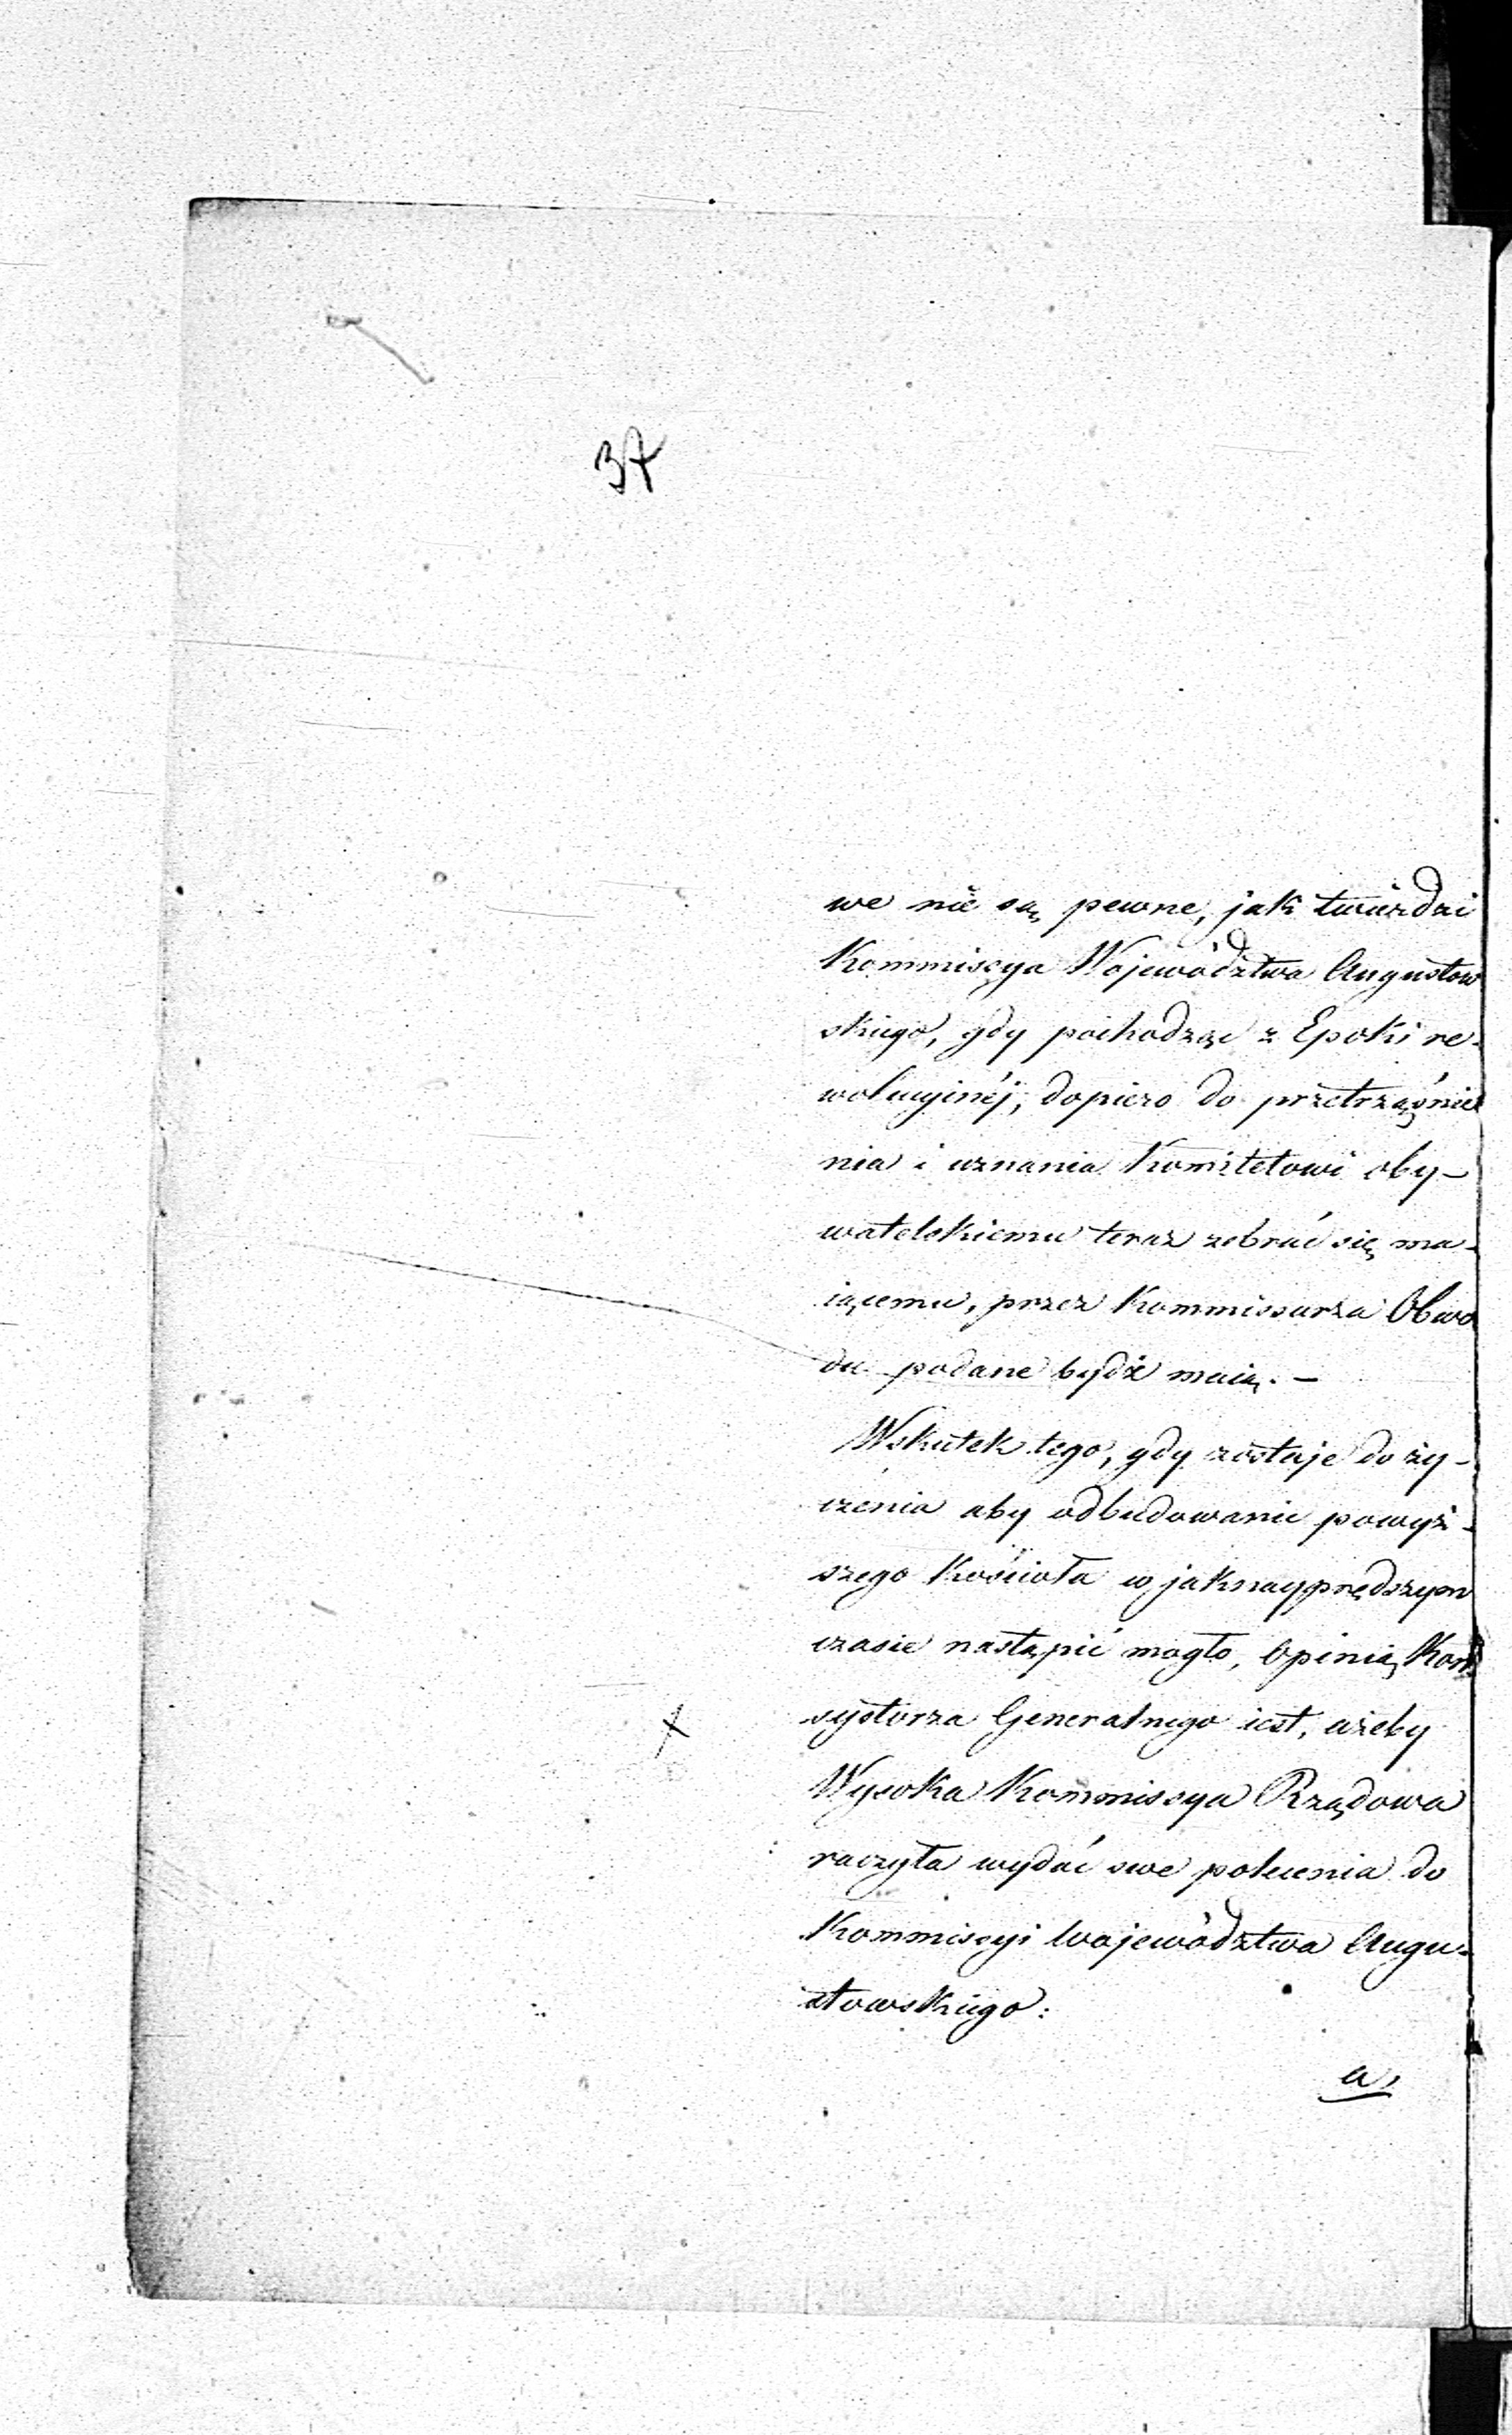 37
we nie są pewne, jak twierdzi
Kommissya Województwa Augustow
skiego, gdy pochodząc z Epoki re-
wolucyinéj, dopiero do przetrząśnie
nia i uznania Komitetowi oby-
watelskiemu teraz zebrać się ma-
iącemu, przez Kommissarza Obwo
du podane bydź maią. -
Wskutek tego, gdy zostaje do ży-
czenia aby odbudowanie powyż-
szego Kościoła w jaknayprędszym
czasie nastąpić mogło, Opinią Kon
systorza Generalnego iest, ażeby
Wysoka Kommissya Rządowa
raczyła wydać swe polecenia do
Kommissyi Województwa Augu-
stowskiego:
a,